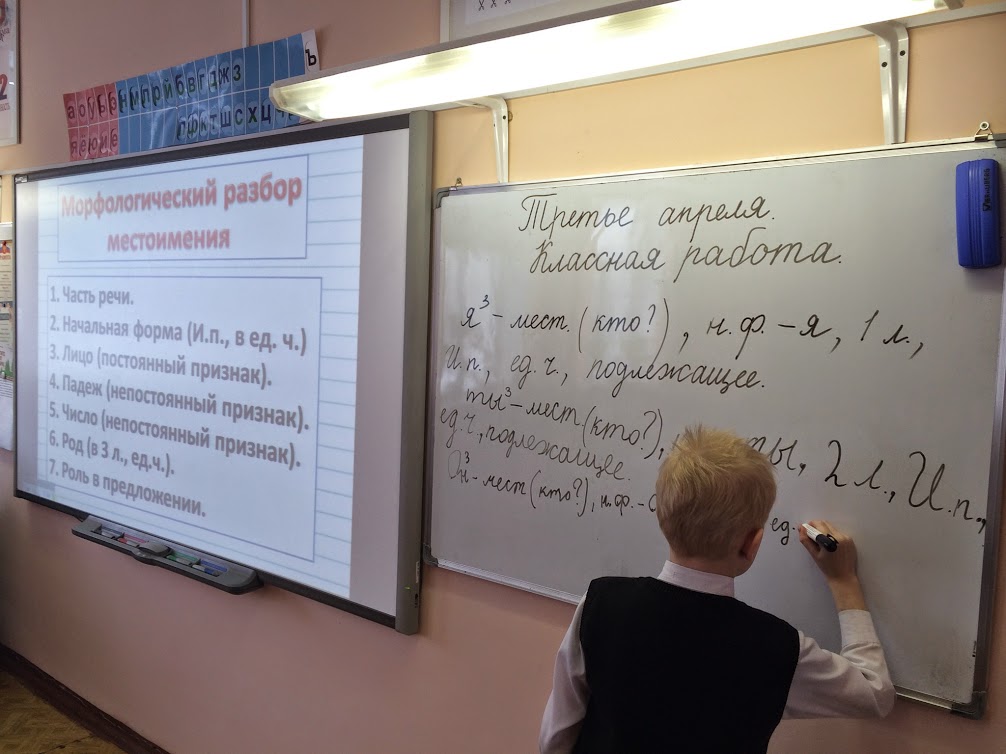 Морфологический разбор
местоимения
1. Часть речи.
2. Начальная форма (И.п., в ед. ч.)
3. Лицо (постоянный признак).
4. Падеж (непостоянный признак).
5. Число (непостоянный признак).
6. Род (в 3 л., ед.ч.).
7. Роль в предложении.
Третье апреля.
Классная работа.
я³ – мест. (кто?), н.ф. – я, 1 л.,
И.п., ед.ч., подлежащее.
ты³ – мест (кто?), ты, 2 л., И.п.,
ед.ч., подлежащее.
Он³ – мест (кто?), н.ф. – ед.